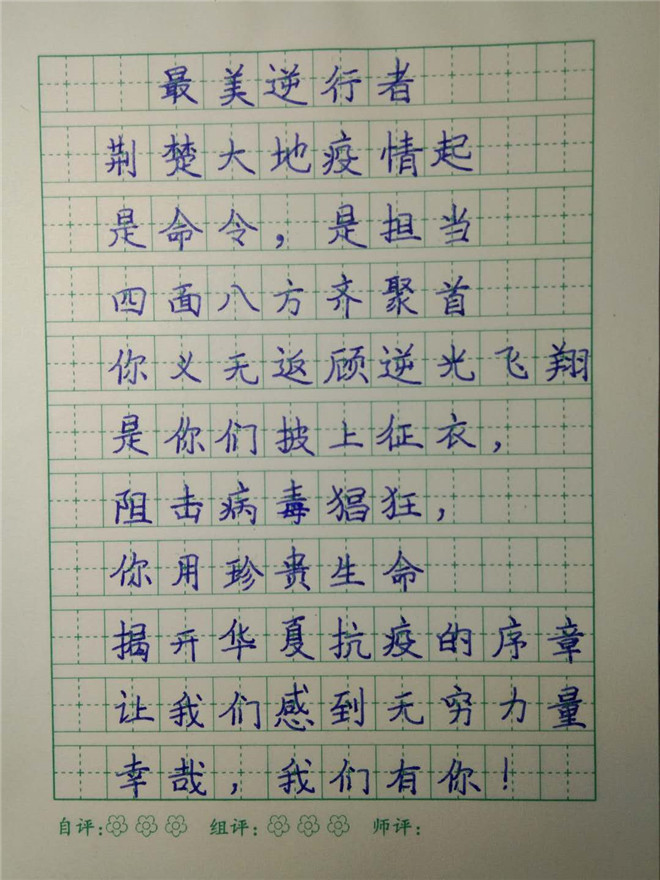 最美逆行者
荆楚大地疫情起
是命令，是担当
四面八方齐聚首
你义无返顾逆光飞翔
是你们披上征衣，
阻击病毒猖狂，
你用珍贵生命
揭开华夏抗疫的序章
让我们感到无穷力量
幸哉，我们有你！
自评： 组评： 师评：